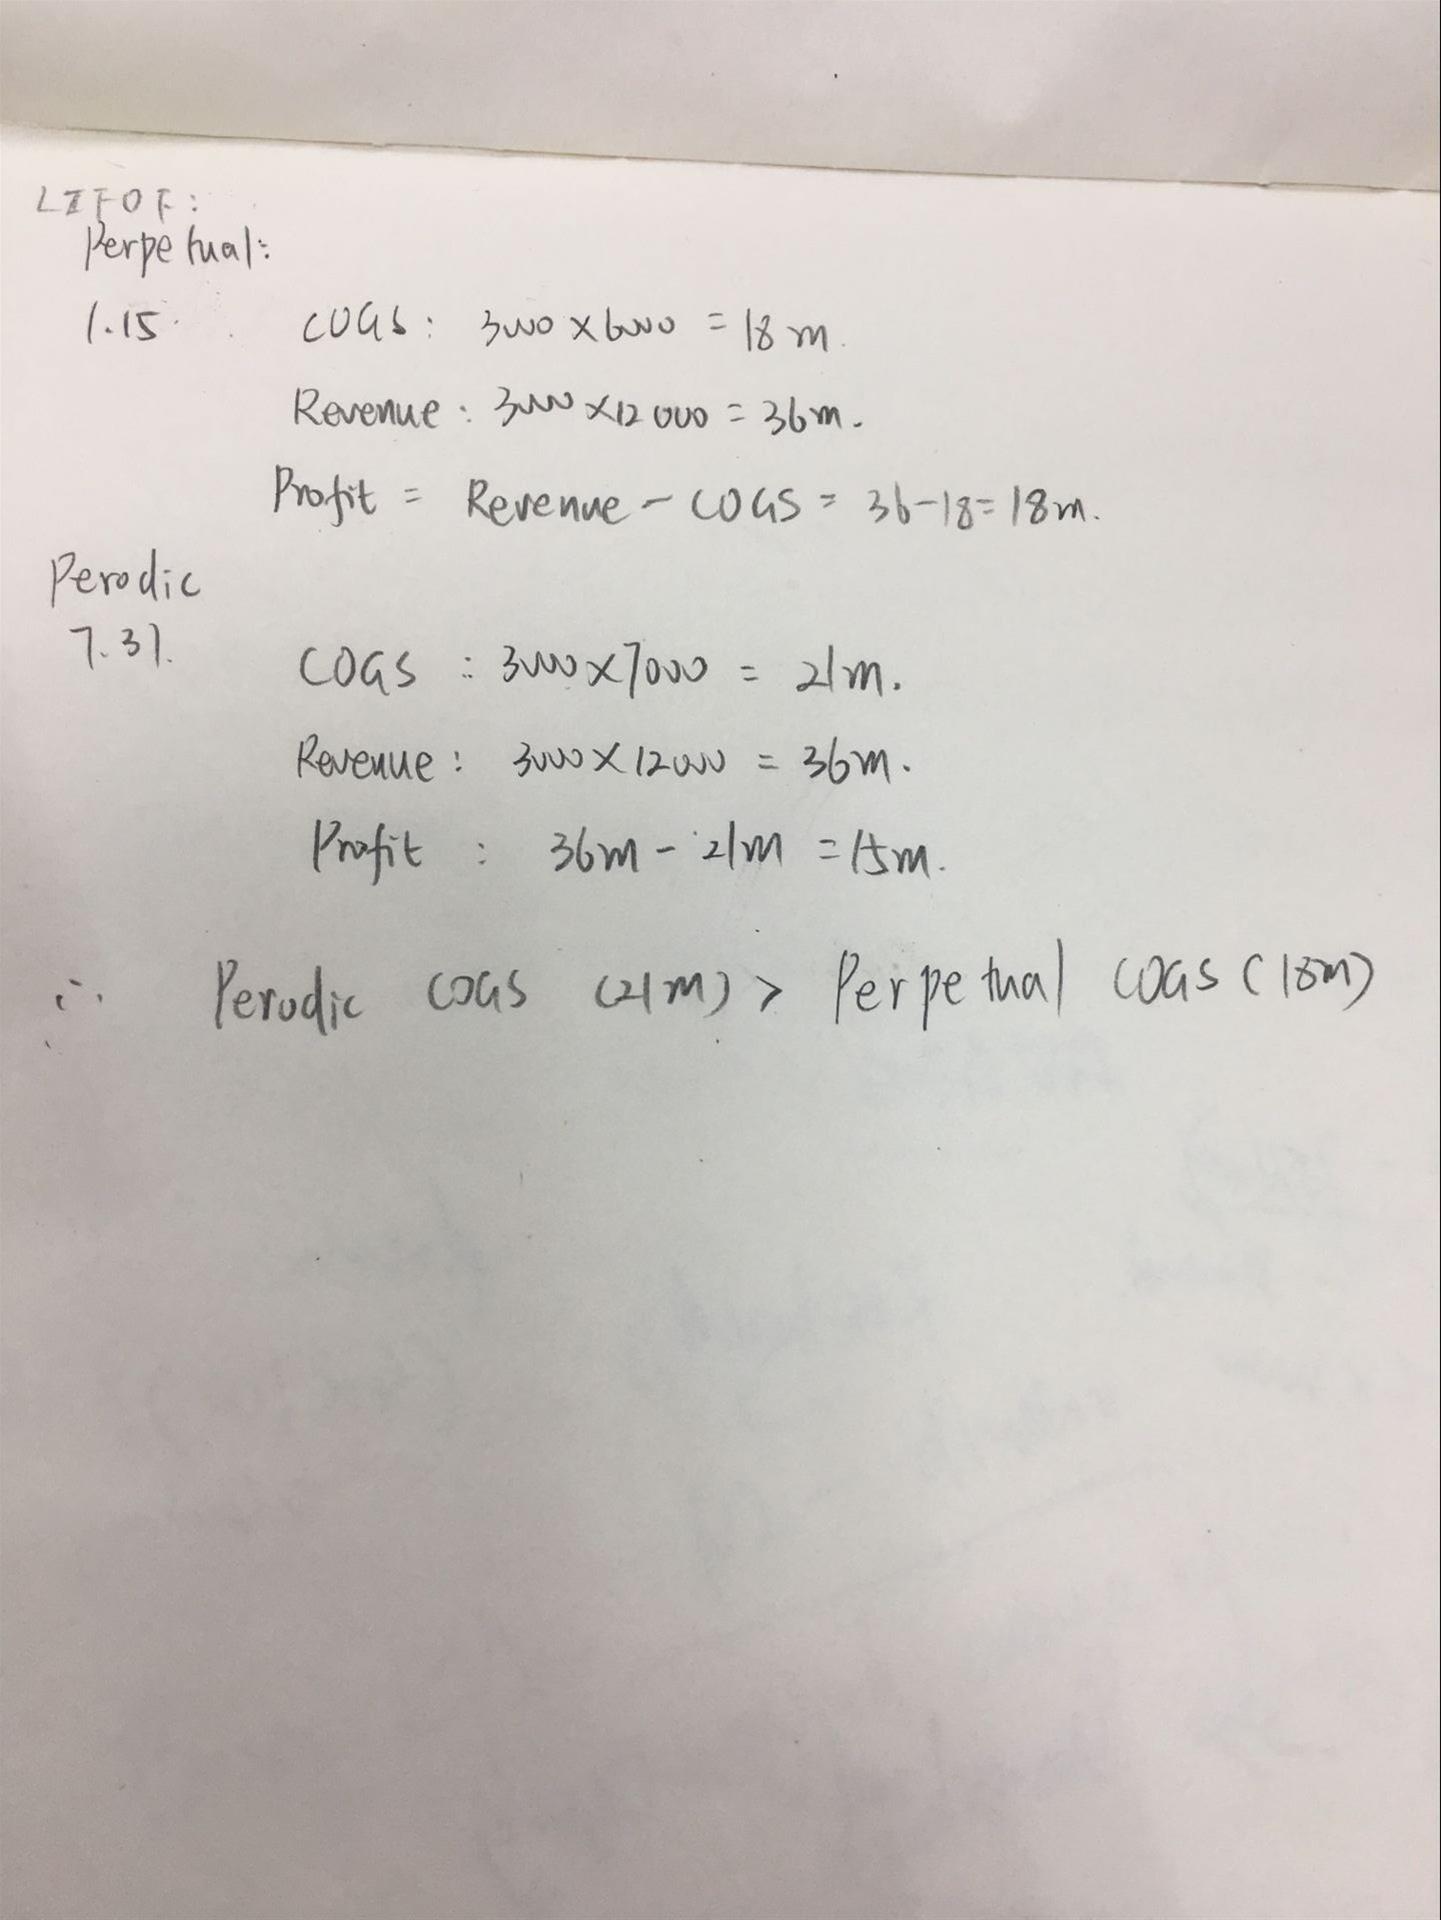 LIFOF:
Perpetual:
1.15 COGS: 3000 × 6000 = 18m.
Revenue: 3000 × 12000 = 36m.
Profit = Revenue - COGS = 36-18 = 18m.
Perodic
7.31. COGS : 3000 × 7000 = 21m.
Revenue: 3000 × 12000 = 36m.
Profit : 36m - 21m = 15m.
∴ Perodic COGS (21m) > Perpetual COGS (18m)